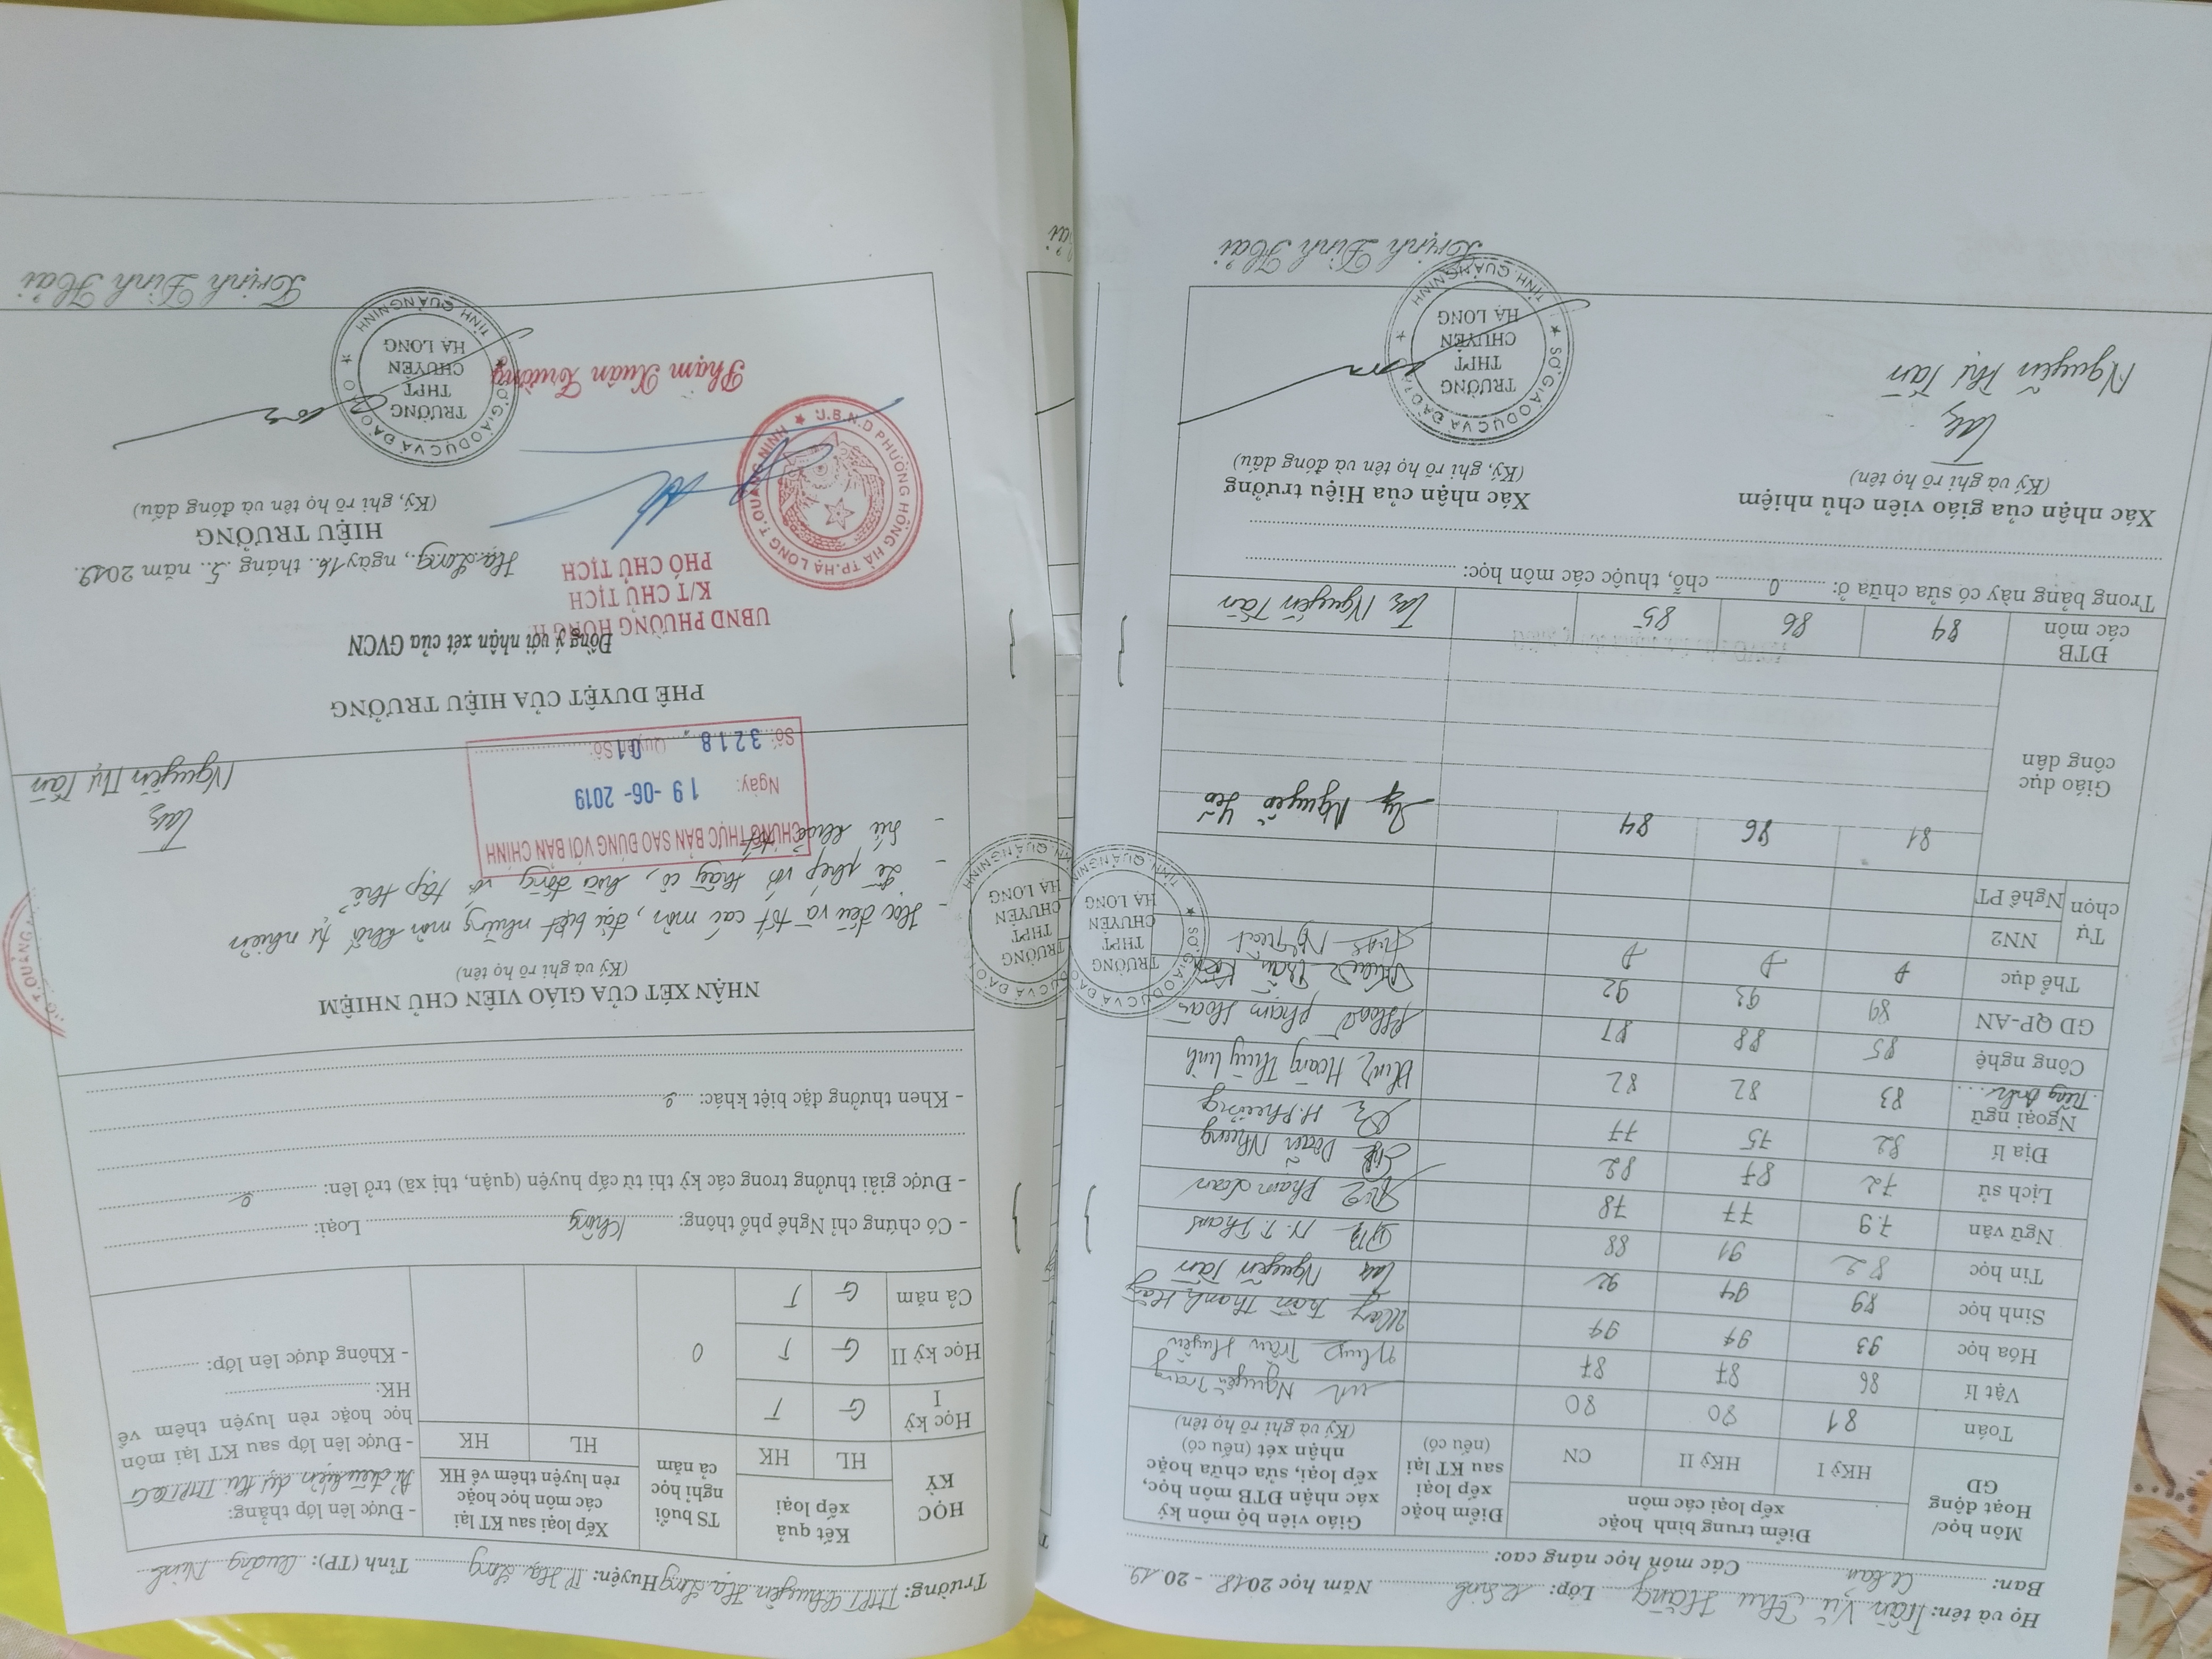 Họ và tên: Trần Vũ Thu Hằng Lớp: 12 Sinh Năm học 2018 - 2019
Ban: Cơ bản Các môn học nâng cao:
Môn học/ Hoạt động GD
Điểm trung bình hoặc xếp loại các môn
Điểm hoặc xếp loại sau KT lại (nếu có)
Giáo viên bộ môn ký xác nhận ĐTB môn học, xếp loại, sửa chữa hoặc nhận xét (nếu có) (Ký và ghi rõ họ tên)
HKỳ I HKỳ II CN
Toán 81 80 80 Nguyễn Trang
Vật lí 86 87 87 Trần Huyền
Hóa học 93 94 94 Trần Thanh Hằng
Sinh học 89 94 92 Nguyễn Tần
Tin học 82 91 88 N. T. Thanh
Ngữ văn 7.9 77 78 Phạm Loan
Lịch sử 72 87 82 Doãn Nhung
Địa lí 82 75 77 H. Phượng
Ngoại ngữ Tiếng Anh... 83 82 82 Hoàng Thùy Linh
Công nghệ 85 88 87 Phạm Hoàn
GD QP-AN 89 93 92 Trần
Thể dục Đ Đ Đ
Tự chọn NN2
Nghề PT
Giáo dục công dân 81 86 84 Nguyễn Yến
ĐTB các môn 84 86 85 Nguyễn Tần
Trong bảng này có sửa chữa ở: 0 chỗ, thuộc các môn học:
Xác nhận của giáo viên chủ nhiệm
(Ký và ghi rõ họ tên)
Nguyễn Thị Tần
Xác nhận của Hiệu trưởng
(Ký, ghi rõ họ tên và đóng dấu)
SỞ GIÁO DỤC VÀ ĐÀO TẠO
TRƯỜNG
THPT
CHUYÊN
HẠ LONG
TỈNH QUẢNG NINH
Trịnh Đình Hải
SỞ GIÁO DỤC VÀ ĐÀO
TRƯỜNG
THPT
CHUYÊN
HẠ LONG
TỈNH QUẢNG NINH
TRƯỜNG
THPT
CHUYÊN
HẠ LONG
TỈNH QUẢNG NINH
Trường: THPT Chuyên Hạ Long Huyện: TP Hạ Long Tỉnh (TP): Quảng Ninh
HỌC KỲ
Kết quả xếp loại
TS buổi nghỉ học cả năm
Xếp loại sau KT lại các môn học hoặc rèn luyện thêm về HK
HL HK HL HK
Học kỳ I G T
Học kỳ II G T 0
Cả năm G T
- Được lên lớp thẳng:
Đủ điều kiện dự thi THPTQG
- Được lên lớp sau KT lại môn
học hoặc rèn luyện thêm về
HK:
- Không được lên lớp:
- Có chứng chỉ Nghề phổ thông: Không Loại:
- Được giải thưởng trong các kỳ thi từ cấp huyện (quận, thị xã) trở lên: 0
- Khen thưởng đặc biệt khác: 0
NHẬN XÉT CỦA GIÁO VIÊN CHỦ NHIỆM
(Ký và ghi rõ họ tên)
- Học đều và tốt các môn, đặc biệt những môn khối tự nhiên
- Lễ phép với thầy cô, hòa đồng với tập thể
- Sức khoẻ tốt
Nguyễn Thị Tần
CHỨNG THỰC BẢN SAO ĐÚNG VỚI BẢN CHÍNH
Ngày: 19-06-2019
Số: 3218 Quyển Số: 01
PHÊ DUYỆT CỦA HIỆU TRƯỞNG
Đồng ý với nhận xét của GVCN
UBND PHƯỜNG HỒNG H
K/T CHỦ TỊCH
PHÓ CHỦ TỊCH
U.B.N.D PHƯỜNG HỒNG HÀ TP.HẠ LONG T.QUẢNG NINH
Phạm Xuân Trường
Hạ Long, ngày 16 tháng 5 năm 2019
HIỆU TRƯỞNG
(Ký, ghi rõ họ tên và đóng dấu)
SỞ GIÁO DỤC VÀ ĐÀO
TRƯỜNG
THPT
CHUYÊN
HẠ LONG
TỈNH QUẢNG NINH
Trịnh Đình Hải
ải